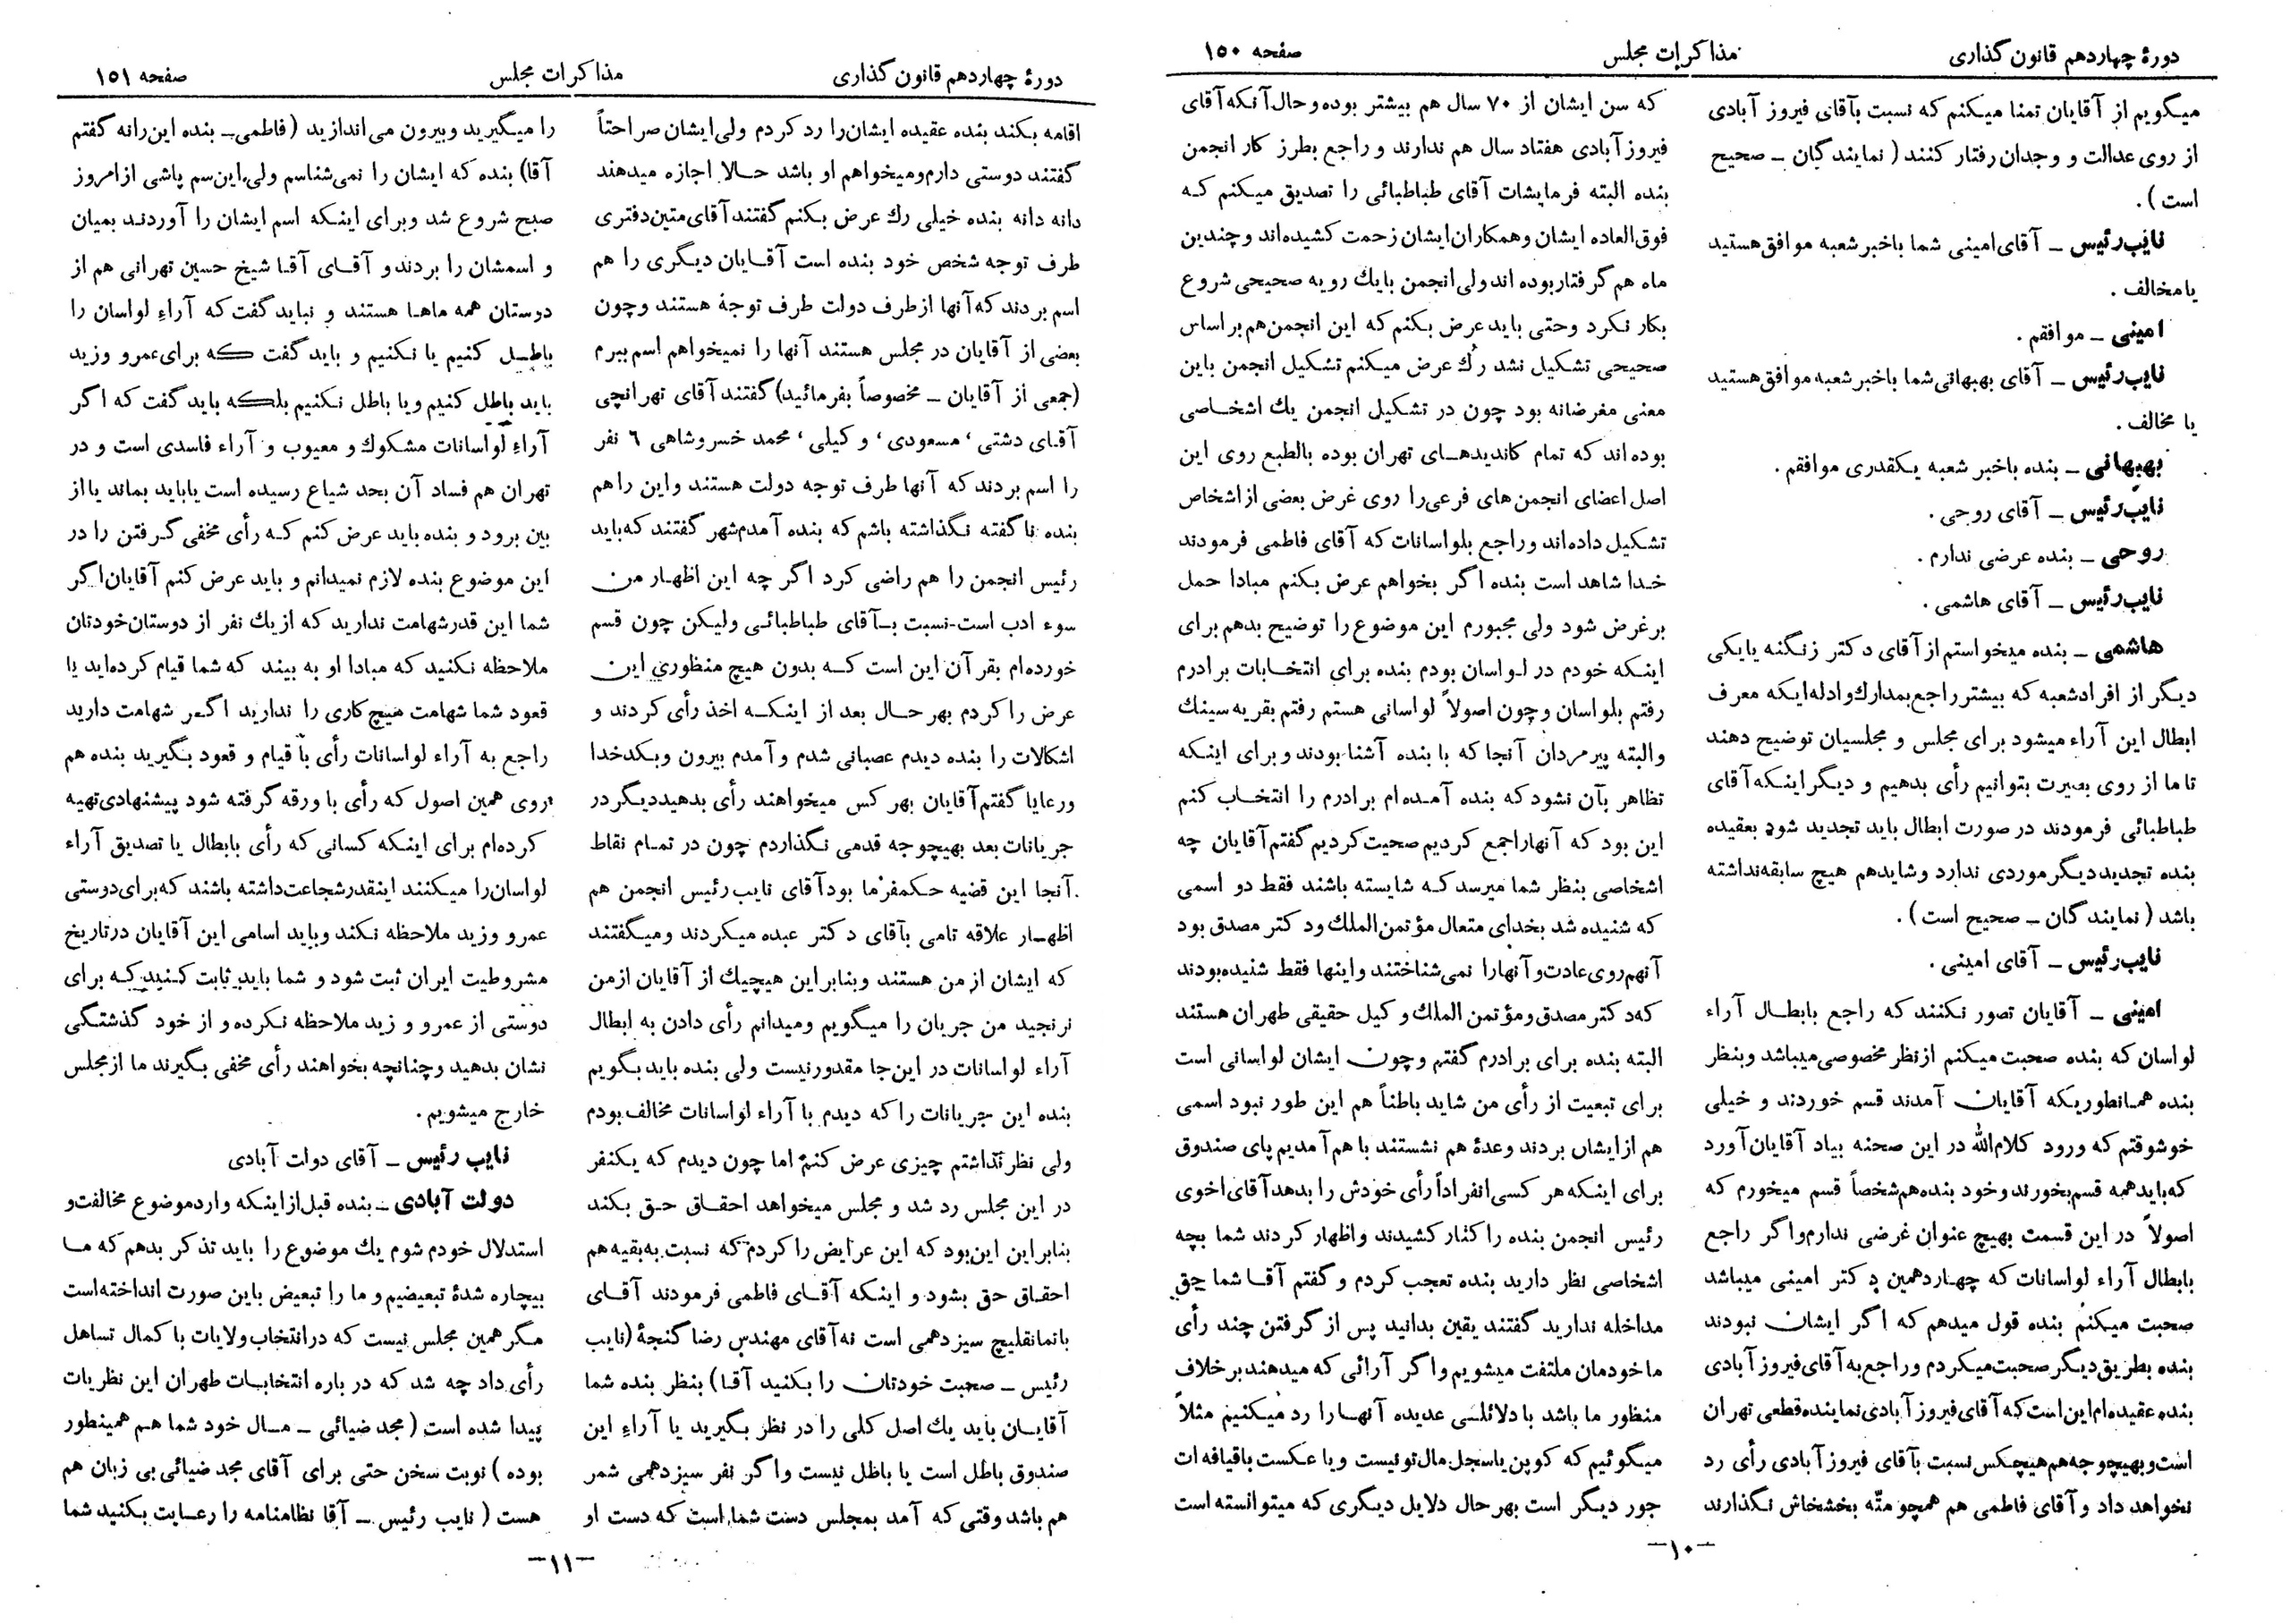 دورهٔ چهاردهم قانون گذاری
مذاکرات مجلس
صفحه ۱۵۰
میگویم از آقایان تمنا میکنم که نسبت بآقای فیروز آبادی
از روی عدالت و وجدان رفتار کنند ( نمایندگان ـ صحیح
است ) .
نایب‌رئیس ـ آقای امینی شما باخبر شعبه موافق هستید
یا مخالف .
امینی ـ موافقم .
نایب‌رئیس ـ آقای بهبهانی شما باخبر شعبه موافق هستید
یا مخالف .
بهبهانی ـ بنده باخبر شعبه یکقدری موافقم .
نایب‌رئیس ـ آقای روحی .
روحی ـ بنده عرضی ندارم .
نایب‌رئیس ـ آقای هاشمی .
هاشمی ـ بنده میخواستم از آقای دکتر زنگنه یا یکی
دیگر از افراد شعبه که بیشتر راجع بمدارک و ادله‌ایکه معرف
ابطال این آراء میشود برای مجلس و مجلسیان توضیح دهند
تا ما از روی بصیرت بتوانیم رأی بدهیم و دیگر اینکه آقای
طباطبائی فرمودند در صورت ابطال باید تجدید شود بعقیده
بنده تجدید دیگر موردی ندارد و شاید هم هیچ سابقه نداشته
باشد ( نمایندگان ـ صحیح است ) .
نایب‌رئیس ـ آقای امینی .
امینی ـ آقایان تصور نکنند که راجع بابطال آراء
لواسان که بنده صحبت میکنم از نظر مخصوصی میباشد و بنظر
بنده همانطوریکه آقایان آمدند قسم خوردند و خیلی
خوشوقتم که ورود کلام‌الله در این صحنه بیاد آقایان آورد
که باید همه قسم بخورند و خود بنده هم شخصاً قسم میخورم که
اصولاً در این قسمت بهیچ عنوان غرضی ندارم و اگر راجع
بابطال آراء لواسانات که چهاردهمین دکتر امینی میباشد
صحبت میکنم بنده قول میدهم که اگر ایشان نبودند
بنده بطریق دیگر صحبت میکردم و راجع به آقای فیروز آبادی
بنده عقیده‌ام این است که آقای فیروز آبادی نماینده قطعی تهران
است و بهیچوجه هم هیچکس نسبت بآقای فیروز آبادی رأی رد
نخواهد داد و آقای فاطمی هم همچو متّه بخشخاش نگذارند
که سن ایشان از ۷۰ سال هم بیشتر بوده و حال آنکه آقای
فیروز آبادی هفتاد سال هم ندارند و راجع بطرز کار انجمن
بنده البته فرمایشات آقای طباطبائی را تصدیق میکنم که
فوق‌العاده ایشان و همکاران ایشان زحمت کشیده‌اند و چندین
ماه هم گرفتار بوده اند ولی انجمن بایک رویه صحیحی شروع
بکار نکرد وحتی باید عرض بکنم که این انجمن هم بر اساس
صحیحی تشکیل نشد رک عرض میکنم تشکیل انجمن باین
معنی مغرضانه بود چون در تشکیل انجمن یک اشخاصی
بوده اند که تمام کاندیدهای تهران بوده بالطبع روی این
اصل اعضای انجمن های فرعی را روی غرض بعضی از اشخاص
تشکیل داده‌اند و راجع بلواسانات که آقای فاطمی فرمودند
خدا شاهد است بنده اگر بخواهم عرض بکنم مبادا حمل
برغرض شود ولی مجبورم این موضوع را توضیح بدهم برای
اینکه خودم در لواسان بودم بنده برای انتخابات برادرم
رفتم بلواسان و چون اصولاً لواسانی هستم رفتم بقریه سینک
والبته پیرمردان آنجا که با بنده آشنا بودند و برای اینکه
تظاهر بآن نشود که بنده آمده‌ام برادرم را انتخاب کنم
این بود که آنها را جمع کردیم صحبت کردیم گفتم آقایان چه
اشخاصی بنظر شما میرسد که شایسته باشند فقط دو اسمی
که شنیده شد بخدای متعال مؤتمن‌الملک و دکتر مصدق بود
آنهم روی عادت و آنها را نمی‌شناختند و اینها فقط شنیده بودند
که دکتر مصدق و مؤتمن الملک وکیل حقیقی طهران هستند
البته بنده برای برادرم گفتم و چون ایشان لواسانی است
برای تبعیت از رأی من شاید باطناً هم این طور نبود اسمی
هم از ایشان بردند وعدهٔ هم نشستند با هم آمدیم پای صندوق
برای اینکه هر کسی انفراداً رأی خودش را بدهد آقای اخوی
رئیس انجمن بنده را کنار کشیدند و اظهار کردند شما بچه
اشخاصی نظر دارید بنده تعجب کردم و گفتم آقا شما حق
مداخله ندارید گفتند یقین بدانید پس از گرفتن چند رأی
ما خودمان ملتفت میشویم و اگر آرائی که میدهند برخلاف
منظور ما باشد با دلائلی عدیده آنها را رد میکنیم مثلاً
میگوئیم که کوپن یا سجل مال تو نیست و یا عکست باقیافه ات
جور دیگر است بهر حال دلایل دیگری که میتوانسته است
ـ۱۰ـ
دورهٔ چهاردهم قانون گذاری
مذاکرات مجلس
صفحه ۱۵۱
اقامه بکند بنده عقیده ایشان را رد کردم ولی ایشان صراحتاً
گفتند دوستی دارم و میخواهم او باشد حالا اجازه میدهند
دانه دانه بنده خیلی رک عرض بکنم گفتند آقای متین دفتری
طرف توجه شخص خود بنده است آقایان دیگری را هم
اسم بردند که آنها از طرف دولت طرف توجهٔ هستند و چون
بعضی از آقایان در مجلس هستند آنها را نمیخواهم اسم ببرم
(جمعی از آقایان ـ مخصوصاً بفرمائید) گفتند آقای تهرانچی
آقای دشتی ، مسعودی ، وکیلی ، محمد خسروشاهی ۶ نفر
را اسم بردند که آنها طرف توجه دولت هستند و این را هم
بنده نا گفته نگذاشته باشم که بنده آمدم شهر گفتند که باید
رئیس انجمن را هم راضی کرد اگر چه این اظهار من
سوء ادب است نسبت بآقای طباطبائی ولیکن چون قسم
خورده‌ام بقرآن این است که بدون هیچ منظوری این
عرض را کردم بهر حال بعد از اینکه اخذ رأی کردند و
اشکالات را بنده دیدم عصبانی شدم و آمدم بیرون و بکدخدا
ورعایا گفتم آقایان بهر کس میخواهند رأی بدهید دیگر در
جریانات بعد بهیچوجه قدمی نگذاردم چون در تمام نقاط
آنجا این قضیه حکمفرما بود آقای نایب رئیس انجمن هم
اظهار علاقه تامی بآقای دکتر عبده میکردند و میگفتند
که ایشان از من هستند و بنابراین هیچیک از آقایان از من
نرنجید من جریان را میگویم و میدانم رأی دادن به ابطال
آراء لواسانات در این جا مقدور نیست ولی بنده باید بگویم
بنده این جریانات را که دیدم با آراء لواسانات مخالف بودم
ولی نظر نداشتم چیزی عرض کنم اما چون دیدم که یکنفر
در این مجلس رد شد و مجلس میخواهد احقاق حق بکند
بنابراین این بود که این عرایض را کردم که نسبت به بقیه هم
احقاق حق بشود و اینکه آقای فاطمی فرمودند آقای
باتمانقلیچ سیزدهمی است نه آقای مهندس رضا گنجهٔ (نایب
رئیس ـ صحبت خودتان را بکنید آقا) بنظر بنده شما
آقایان باید یک اصل کلی را در نظر بگیرید یا آراءِ این
صندوق باطل است یا باطل نیست و اگر نفر سیزدهمی شمر
هم باشد وقتی که آمد بمجلس دست شما است که دست او
را میگیرید و بیرون می‌اندازید (فاطمی ـ بنده این را نه گفتم
آقا) بنده که ایشان را نمی‌شناسم ولی این سم پاشی از امروز
صبح شروع شد و برای اینکه اسم ایشان را آوردند بمیان
و اسمشان را بردند و آقای آقا شیخ حسین تهرانی هم از
دوستان همه ماها هستند و نباید گفت که آراءِ لواسان را
باطل کنیم یا نکنیم و باید گفت که برای عمرو وزید
باید باطل کنیم و یا باطل نکنیم بلکه باید گفت که اگر
آراءِ لواسانات مشکوک و معیوب و آراء فاسدی است و در
تهران هم فساد آن بحد شیاع رسیده است یا باید بماند یا از
بین برود و بنده باید عرض کنم که رأی مخفی گرفتن را در
این موضوع بنده لازم نمیدانم و باید عرض کنم آقایان اگر
شما این قدر شهامت ندارید که از یک نفر از دوستان خودتان
ملاحظه نکنید که مبادا او به بیند که شما قیام کرده‌اید یا
قعود شما شهامت هیچ کاری را ندارید اگر شهامت دارید
راجع به آراء لواسانات رأی با قیام و قعود بگیرید بنده هم
روی همین اصول که رأی با ورقه گرفته شود پیشنهادی تهیه
کرده‌ام برای اینکه کسانی که رأی بابطال یا تصدیق آراء
لواسان را میکنند اینقدر شجاعت داشته باشند که برای دوستی
عمرو وزید ملاحظه نکند وباید اسامی این آقایان در تاریخ
مشروطیت ایران ثبت شود و شما باید ثابت کنید که برای
دوستی از عمرو و زید ملاحظه نکرده و از خود گذشتگی
نشان بدهید و چنانچه بخواهند رأی مخفی بگیرند ما از مجلس
خارج میشویم .
نایب رئیس ـ آقای دولت آبادی
دولت آبادی ـ بنده قبل از اینکه وارد موضوع مخالفت و
استدلال خودم شوم یک موضوع را باید تذکر بدهم که ما
بیچاره شدهٔ تبعیضیم و ما را تبعیض باین صورت انداخته است
مگر همین مجلس نیست که در انتخاب ولایات با کمال تساهل
رأی داد چه شد که در باره انتخابات طهران این نظریات
پیدا شده است ( مجد ضیائی ـ مال خود شما هم همینطور
بوده ) نوبت سخن حتی برای آقای مجد ضیائی بی زبان هم
هست ( نایب رئیس ـ آقا نظامنامه را رعایت بکنید شما
ـ۱۱ـ